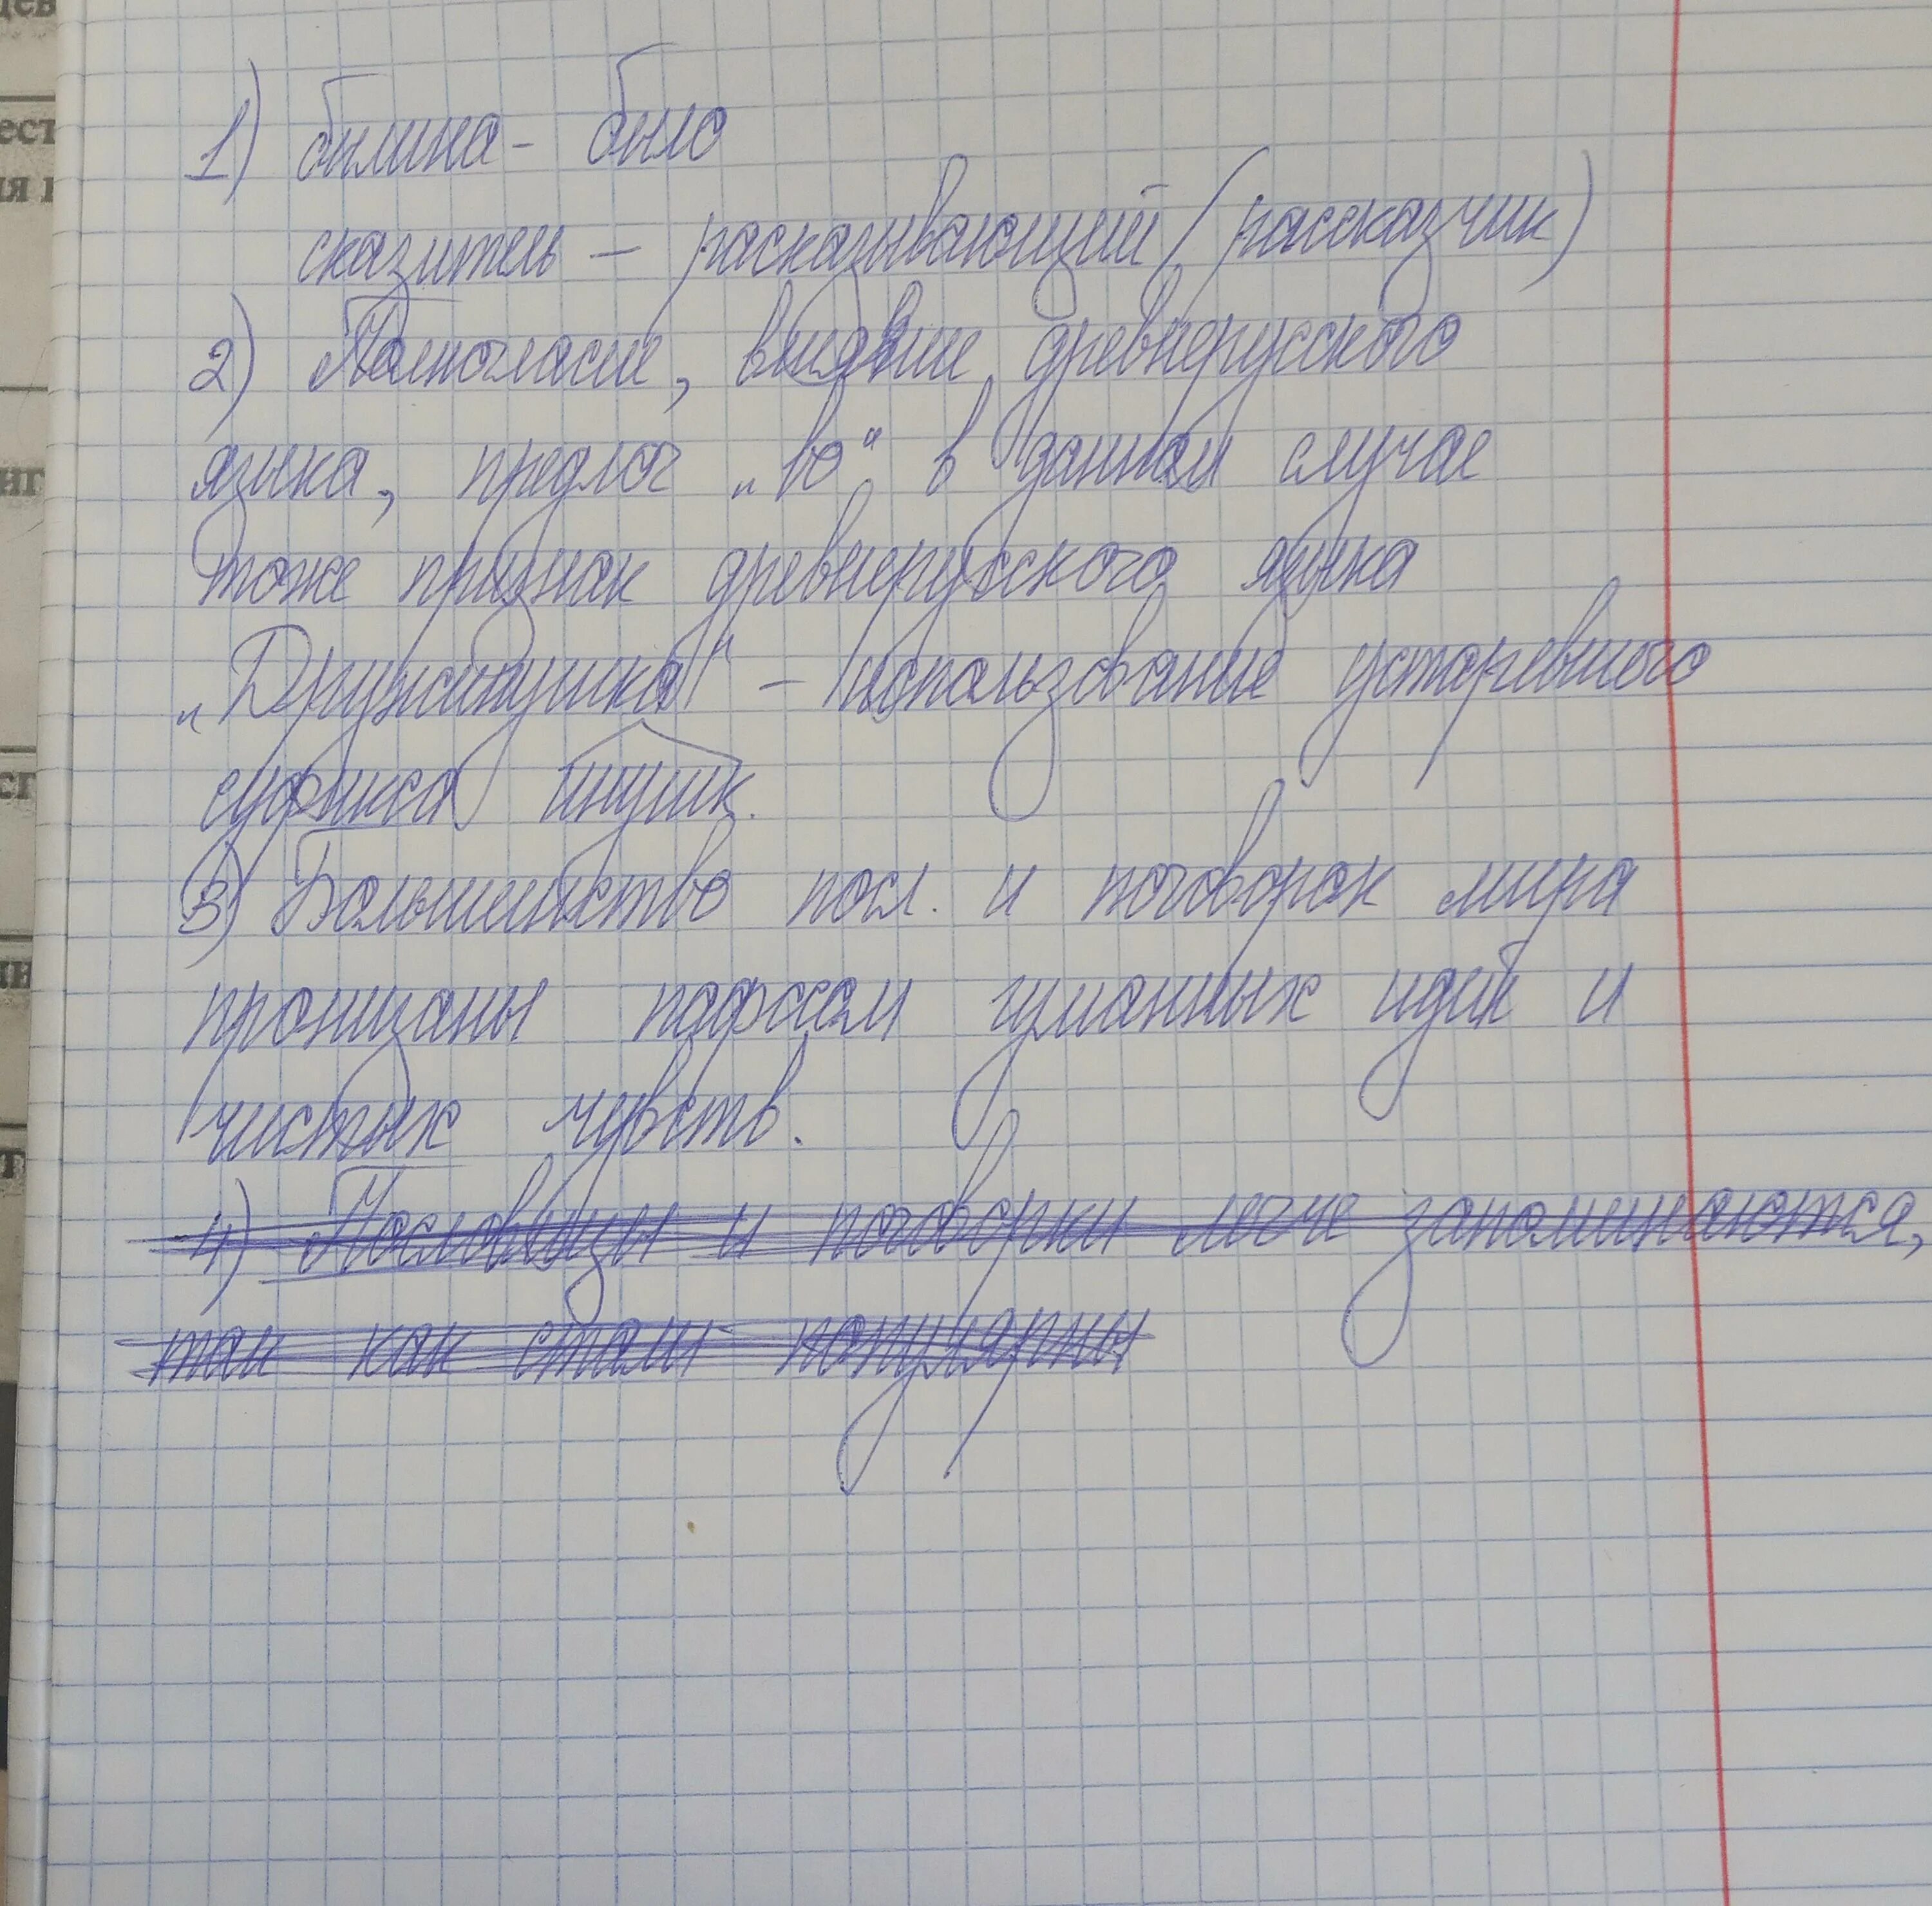 1) былина - было
сказитель - расказывающий (рассказчик)
2) Полногласие, влияние древнерусского
языка, предлог „во“ в данном случае
тоже признак древнерусского языка
„Дружинушка“ - использование устаревшего
суфикса инушк.
3) Большенство посл. и поговорок мира
пронизаны пафосом гуманных идей и
чистых чувств.
4) Пословицы и поговорки легче запоминаются,
так как стали популярны